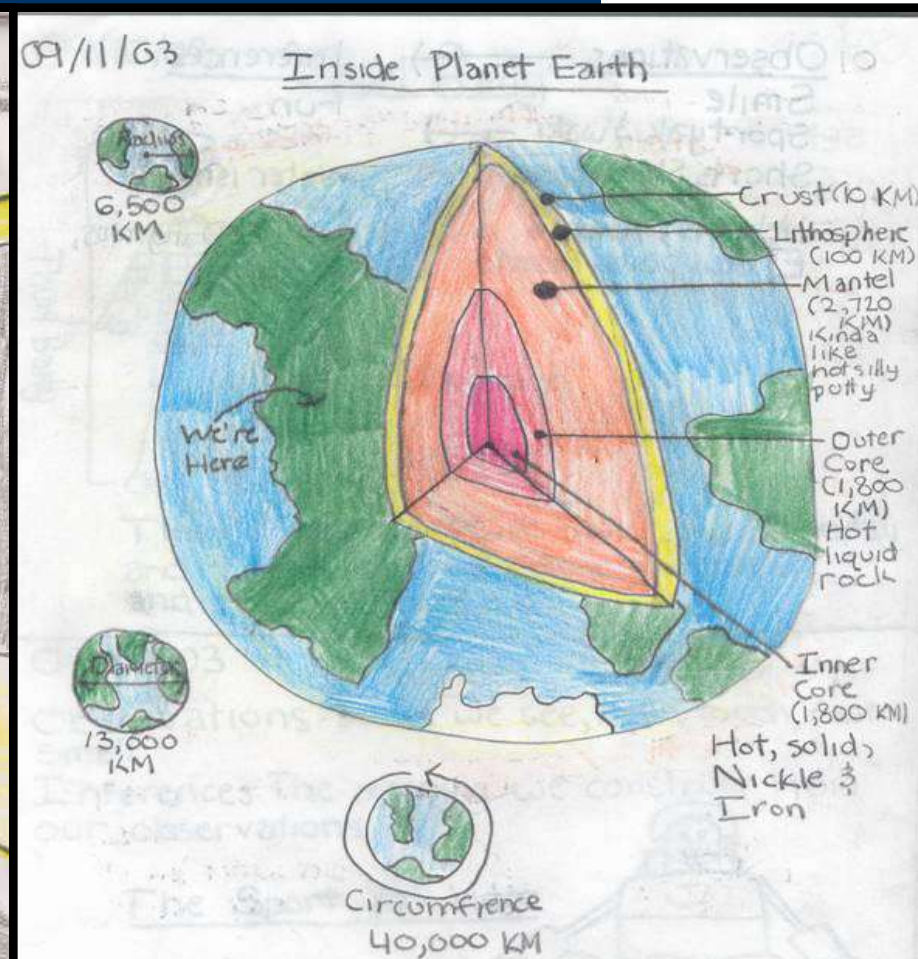 09/11/03
Inside Planet Earth
Radius
6,500
KM
Crust (10 KM)
Lithosphere
(100 KM)
Mantel
(2,720
KM)
Kinda
like
hot silly
putty
We're
Here
Outer
Core
(1,800
KM)
Hot
liquid
rock
Inner
Core
(1,800 KM)
Hot, solid,
Nickle &
Iron
Diameter
13,000
KM
Circumfrence
40,000 KM